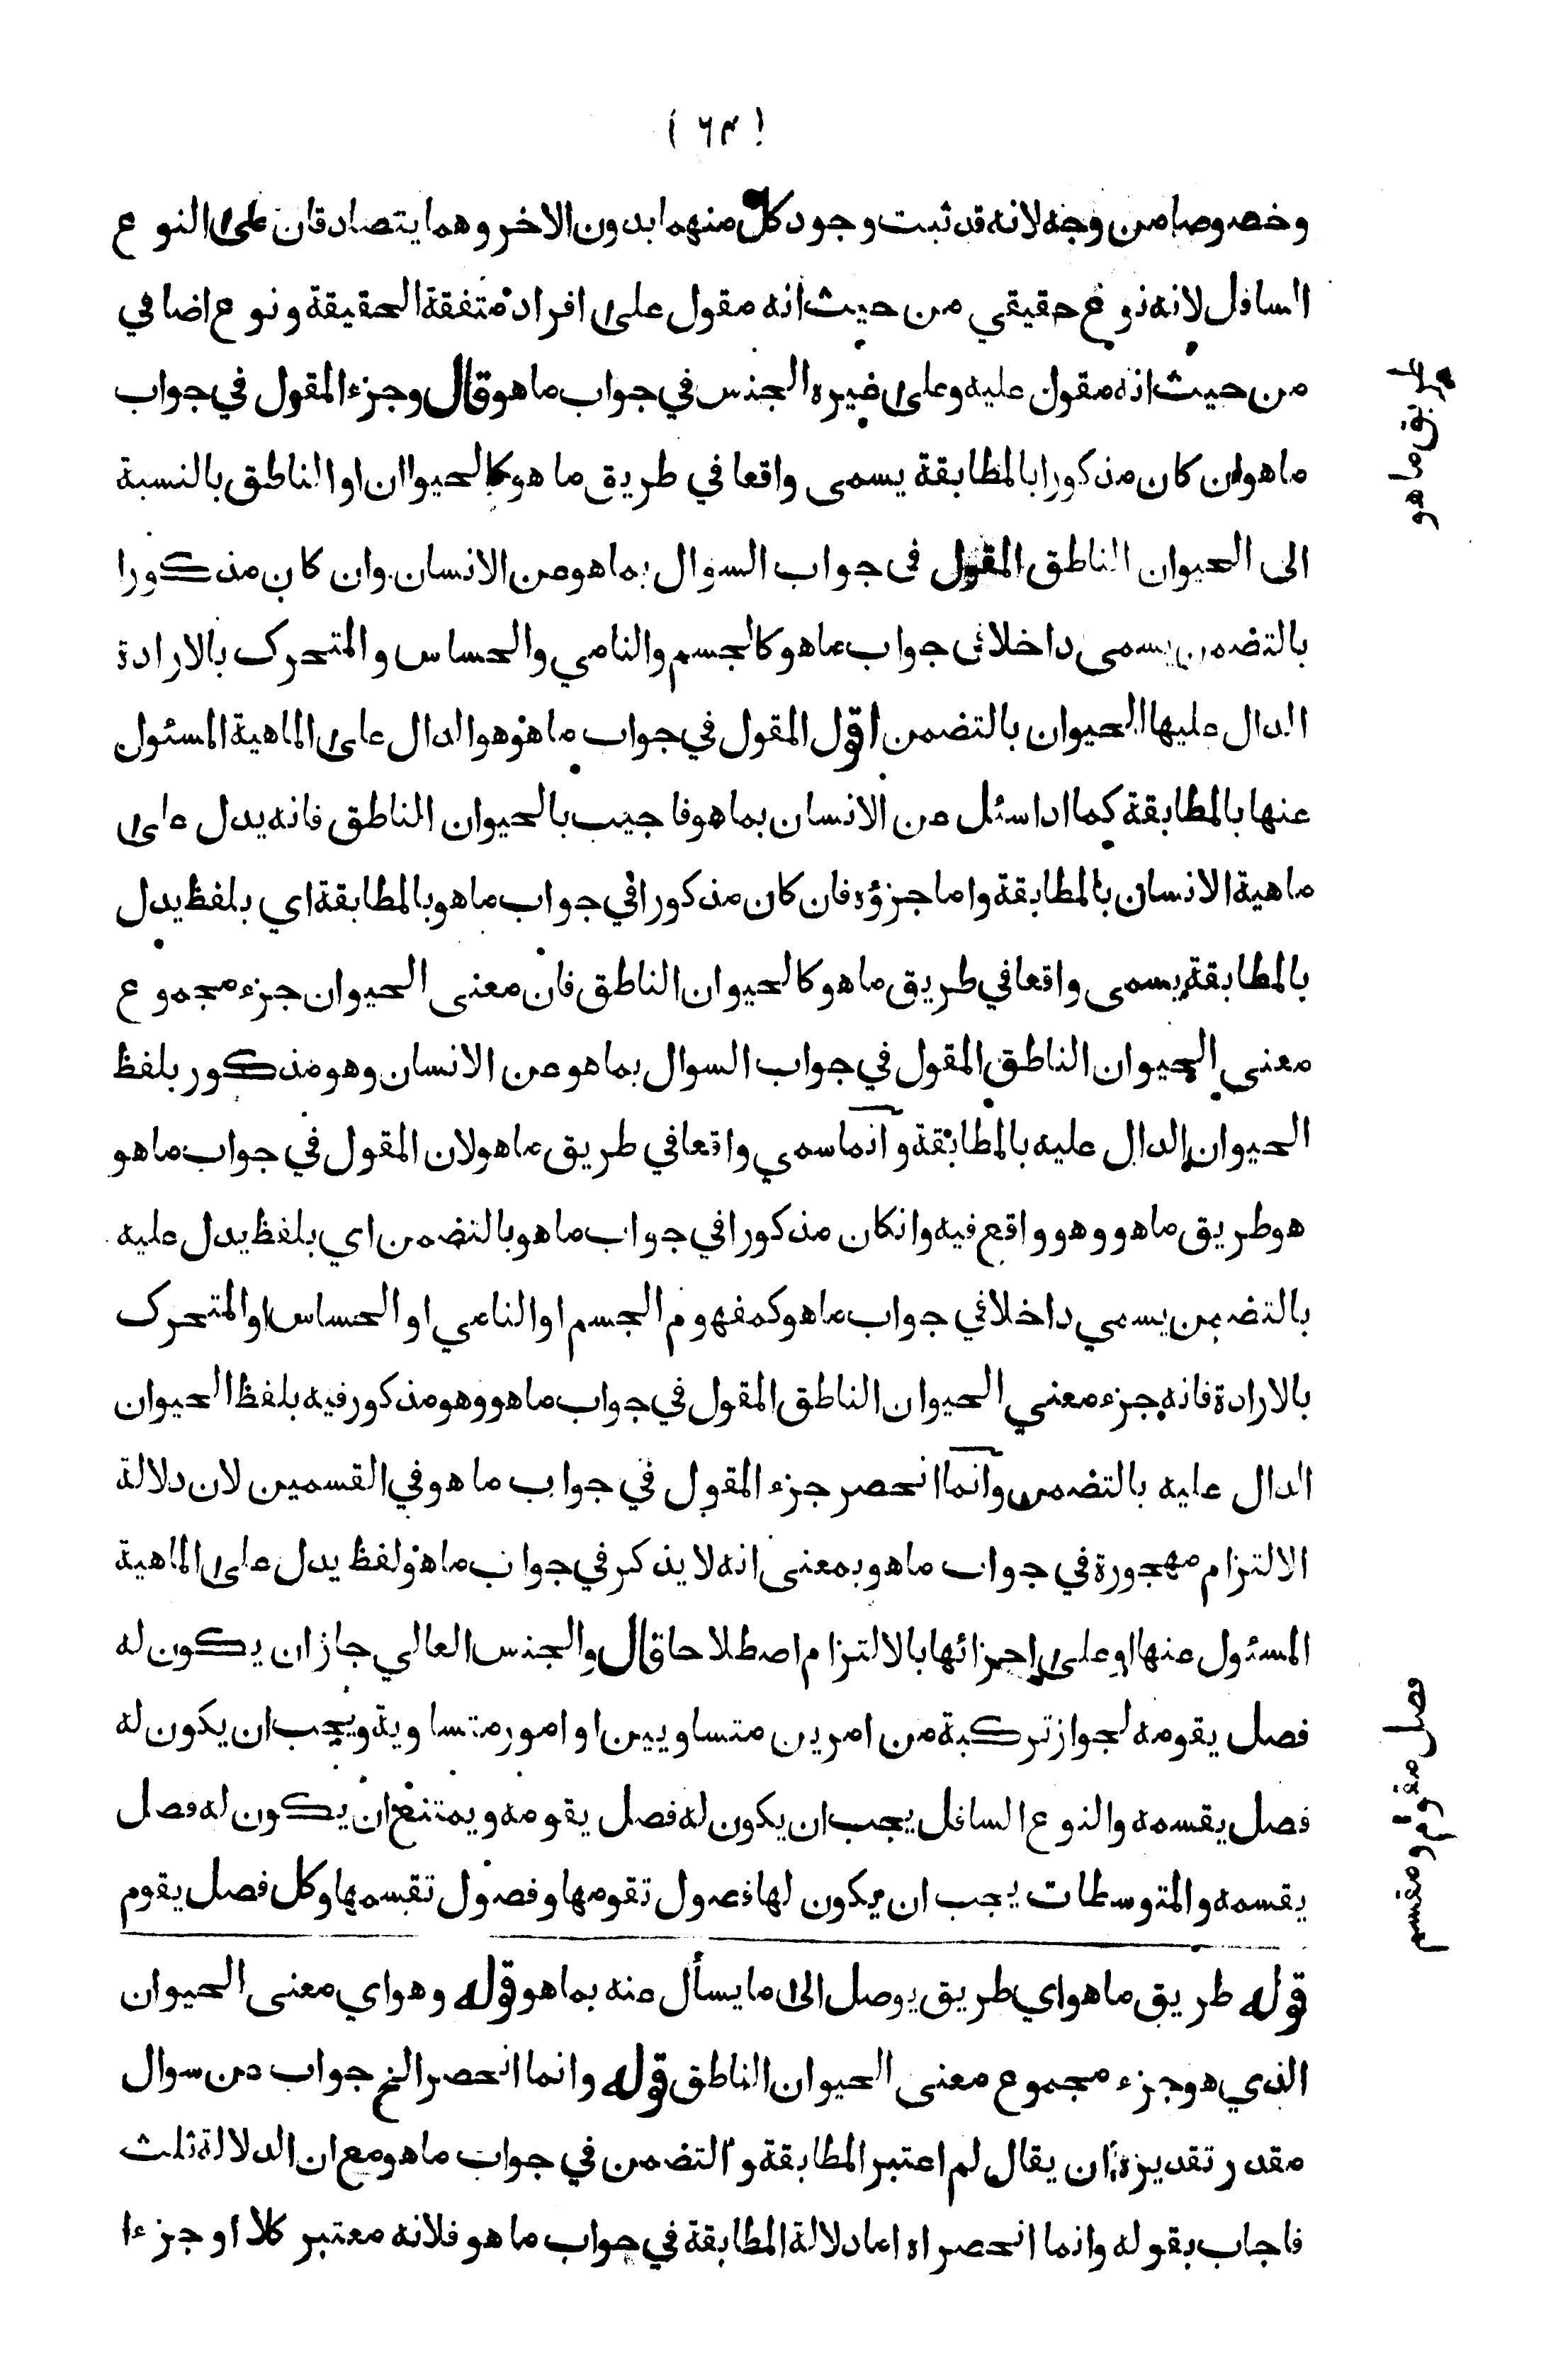 ( ٦٤ )
وخصوصا من وجه لانه قد ثبت وجود كل منهما بدون الاخر وهما يتصادقان على النوع
السافل لانه نوع حقيقي من حيث انه مقول على افراد متفقة الحقيقة ونوع اضافي
من حيث انه مقول عليه وعلى غيره الجنس في جواب ما هو قال وجزء المقول في جواب
طريق ما هو
ما هو ان كان مذكورا بالمطابقة يسمى واقعا في طريق ما هو كالحيوان او الناطق بالنسبة
الى الحيوان الناطق المقول في جواب السوال بما هو عن الانسان وان كان مذكورا
بالتضمن يسمى داخلا في جواب ما هو كالجسم والنامي والحساس والمتحرك بالارادة
الدال عليها الحيوان بالتضمن اقول المقول في جواب ما هو هو الدال على الماهية المسئول
عنها بالمطابقة كما اذا سئل عن الانسان بما هو فاجيب بالحيوان الناطق فانه يدل على
ماهية الانسان بالمطابقة واما جزؤه فان كان مذكورا في جواب ما هو بالمطابقة اي بلفظ يدل
بالمطابقة يسمى واقعا في طريق ما هو كالحيوان الناطق فان معنى الحيوان جزء مجموع
معنى الحيوان الناطق المقول في جواب السوال بما هو عن الانسان وهو مذكور بلفظ
الحيوان الدال عليه بالمطابقة وانما سمي واقعا في طريق ما هو لان المقول في جواب ما هو
هو طريق ما هو وهو واقع فيه وانكان مذكورا في جواب ما هو بالتضمن اي بلفظ يدل عليه
بالتضمن يسمي داخلا في جواب ما هو كمفهوم الجسم او النامي او الحساس او المتحرك
بالارادة فانه جزء معني الحيوان الناطق المقول في جواب ما هو وهو مذكور فيه بلفظ الحيوان
الدال عليه بالتضمن وانما انحصر جزء المقول في جواب ما هو في القسمين لان دلالة
الالتزام مهجورة في جواب ما هو بمعنى انه لا يذكر في جواب ما هو لفظ يدل على الماهية
المسئول عنها او على اجزائها بالالتزام اصطلاحا قال والجنس العالي جاز ان يكون له
فصل يقومه لجواز تركبة من امرين متساويين او امور متساوية ويجب ان يكون له
فصل مقوم ومقسم
فصل يقسمه والنوع السافل يجب ان يكون له فصل يقومه ويمتنع ان يكون له فصل
يقسمه والمتوسطات يجب ان يكون لها فصول تقومها وفصول تقسمها وكل فصل يقوم
قوله طريق ما هو اي طريق يوصل الى ما يسأل عنه بما هو قوله وهو اي معنى الحيوان
الذي هو جزء مجموع معنى الحيوان الناطق قوله وانما انحصر الخ جواب عن سوال
مقدر تقديره ان يقال لم اعتبر المطابقة والتضمن في جواب ما هو مع ان الدلالة ثلث
فاجاب بقوله وانما انحصر اه اما دلالة المطابقة في جواب ما هو فلانه معتبر كلا او جزءا